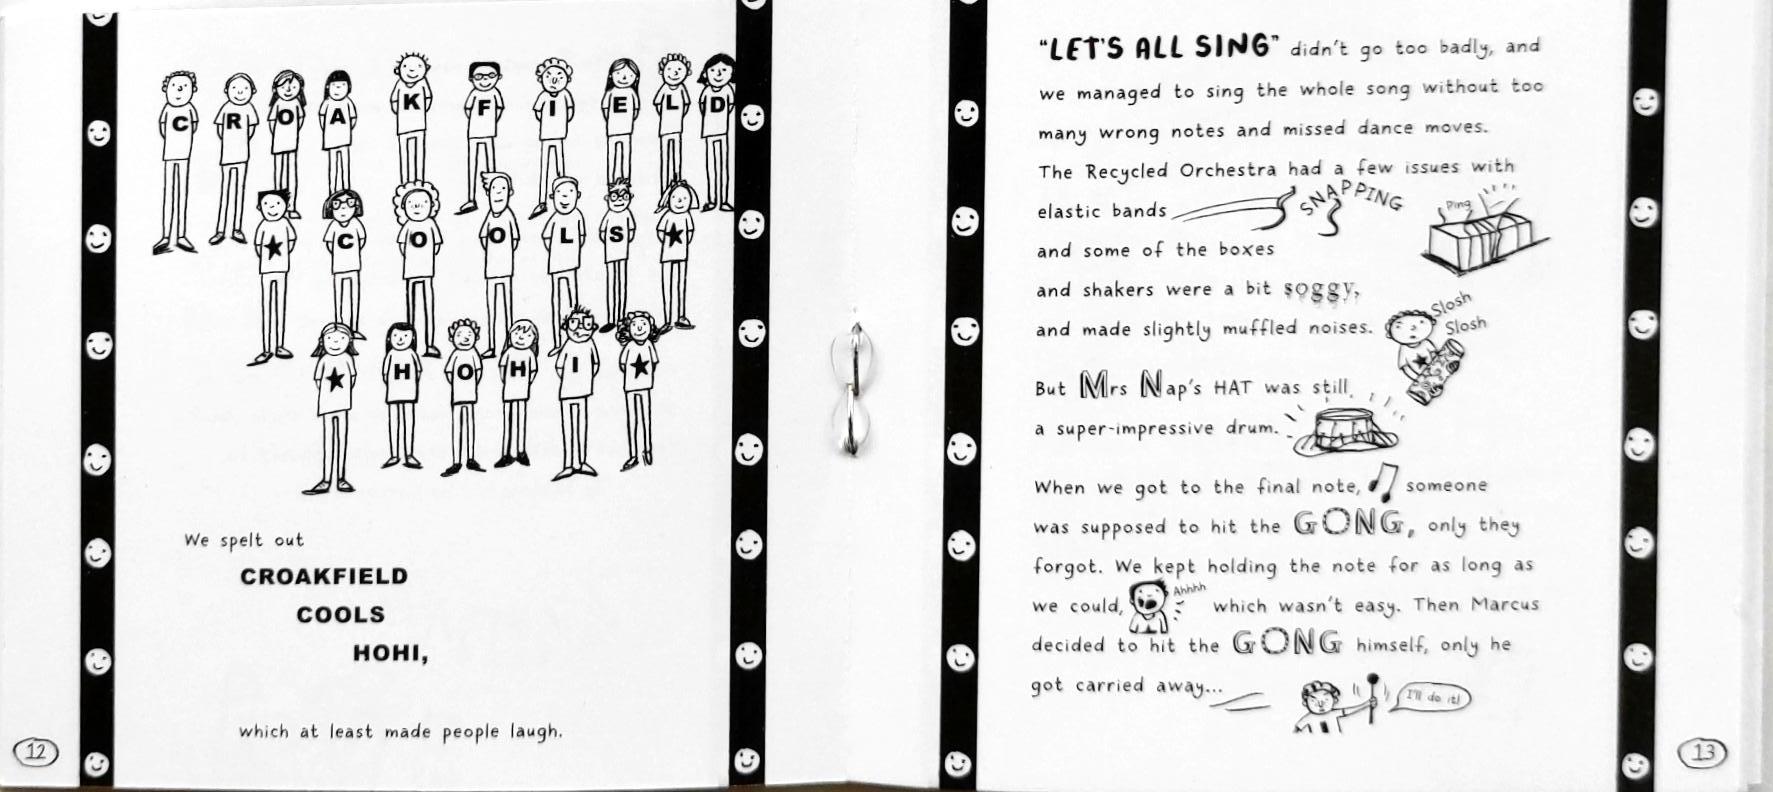 C R O A K F I E L D
★ C O O L S ★
★ H O H I ★
We spelt out
CROAKFIELD
COOLS
HOHI,
which at least made people laugh.
12
"LET'S ALL SING" didn't go too badly, and
we managed to sing the whole song without too
many wrong notes and missed dance moves.
The Recycled Orchestra had a few issues with
elastic bands SNAPPING
Ping
and some of the boxes
and shakers were a bit soggy,
and made slightly muffled noises.
Slosh
Slosh
But Mrs Nap's HAT was still
a super-impressive drum.
When we got to the final note, someone
was supposed to hit the GONG, only they
forgot. We kept holding the note for as long as
we could, Ahhhh which wasn't easy. Then Marcus
decided to hit the GONG himself, only he
got carried away...
I'll do it!
13